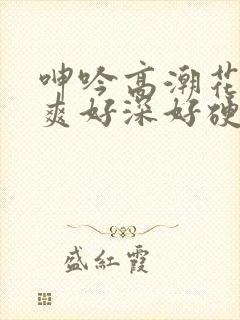 呻吟高潮花
爽好深好硬
盛红霞